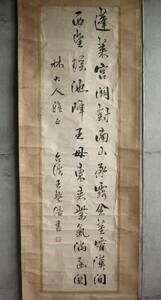 蓬萊宮闕對南山承露金莖霄漢間
西望瑤池降王母東來紫氣滿函關
林大人雅正
王 書